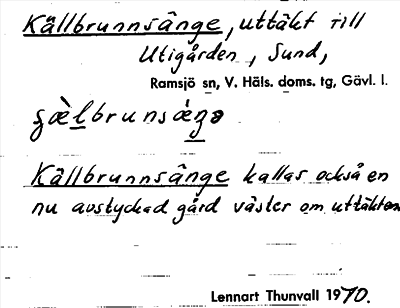 Källbrunnsänge, uttäkt till
Utigården, Sund,
Ramsjö sn, V. Häls. doms. tg, Gävl. l.
Källbrunnsänge kallas också en
nu avstyckad gård väster om uttäkten
Lennart Thunvall 1970.